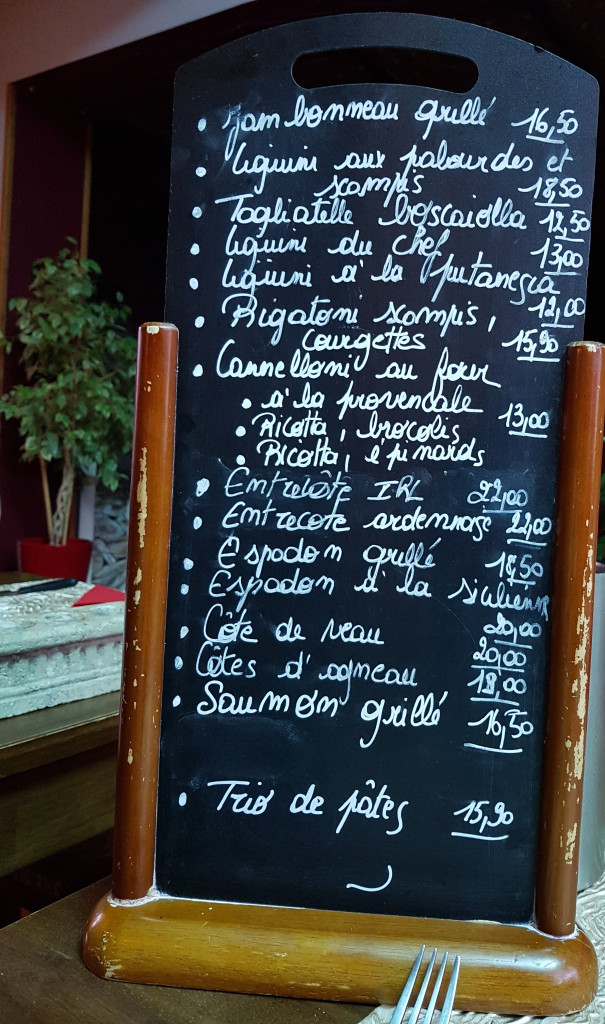 • Jambonneau grillé 16,50
• Liguini aux palourdes et
scampis 18,50
• Tagliatelle boscaiolla 12,50
• Liguini du chef 13,00
• Liguini à la putanesca
12,00
• Rigatoni scampis,
courgettes 15,90
• Cannelloni au four
• à la provencale 13,00
• Ricotta, brocolis
• Ricotta, épinards
• Entrecôte IRL 22,00
• Entrecote ardennaise 22,00
• Espadon grillé
• Espadon à la sicilienne
20,00
• Côte de veau 20,00
• Côtes d'agneau 18,00
• Saumon grillé 16,50
• Trio de pâtes 15,90